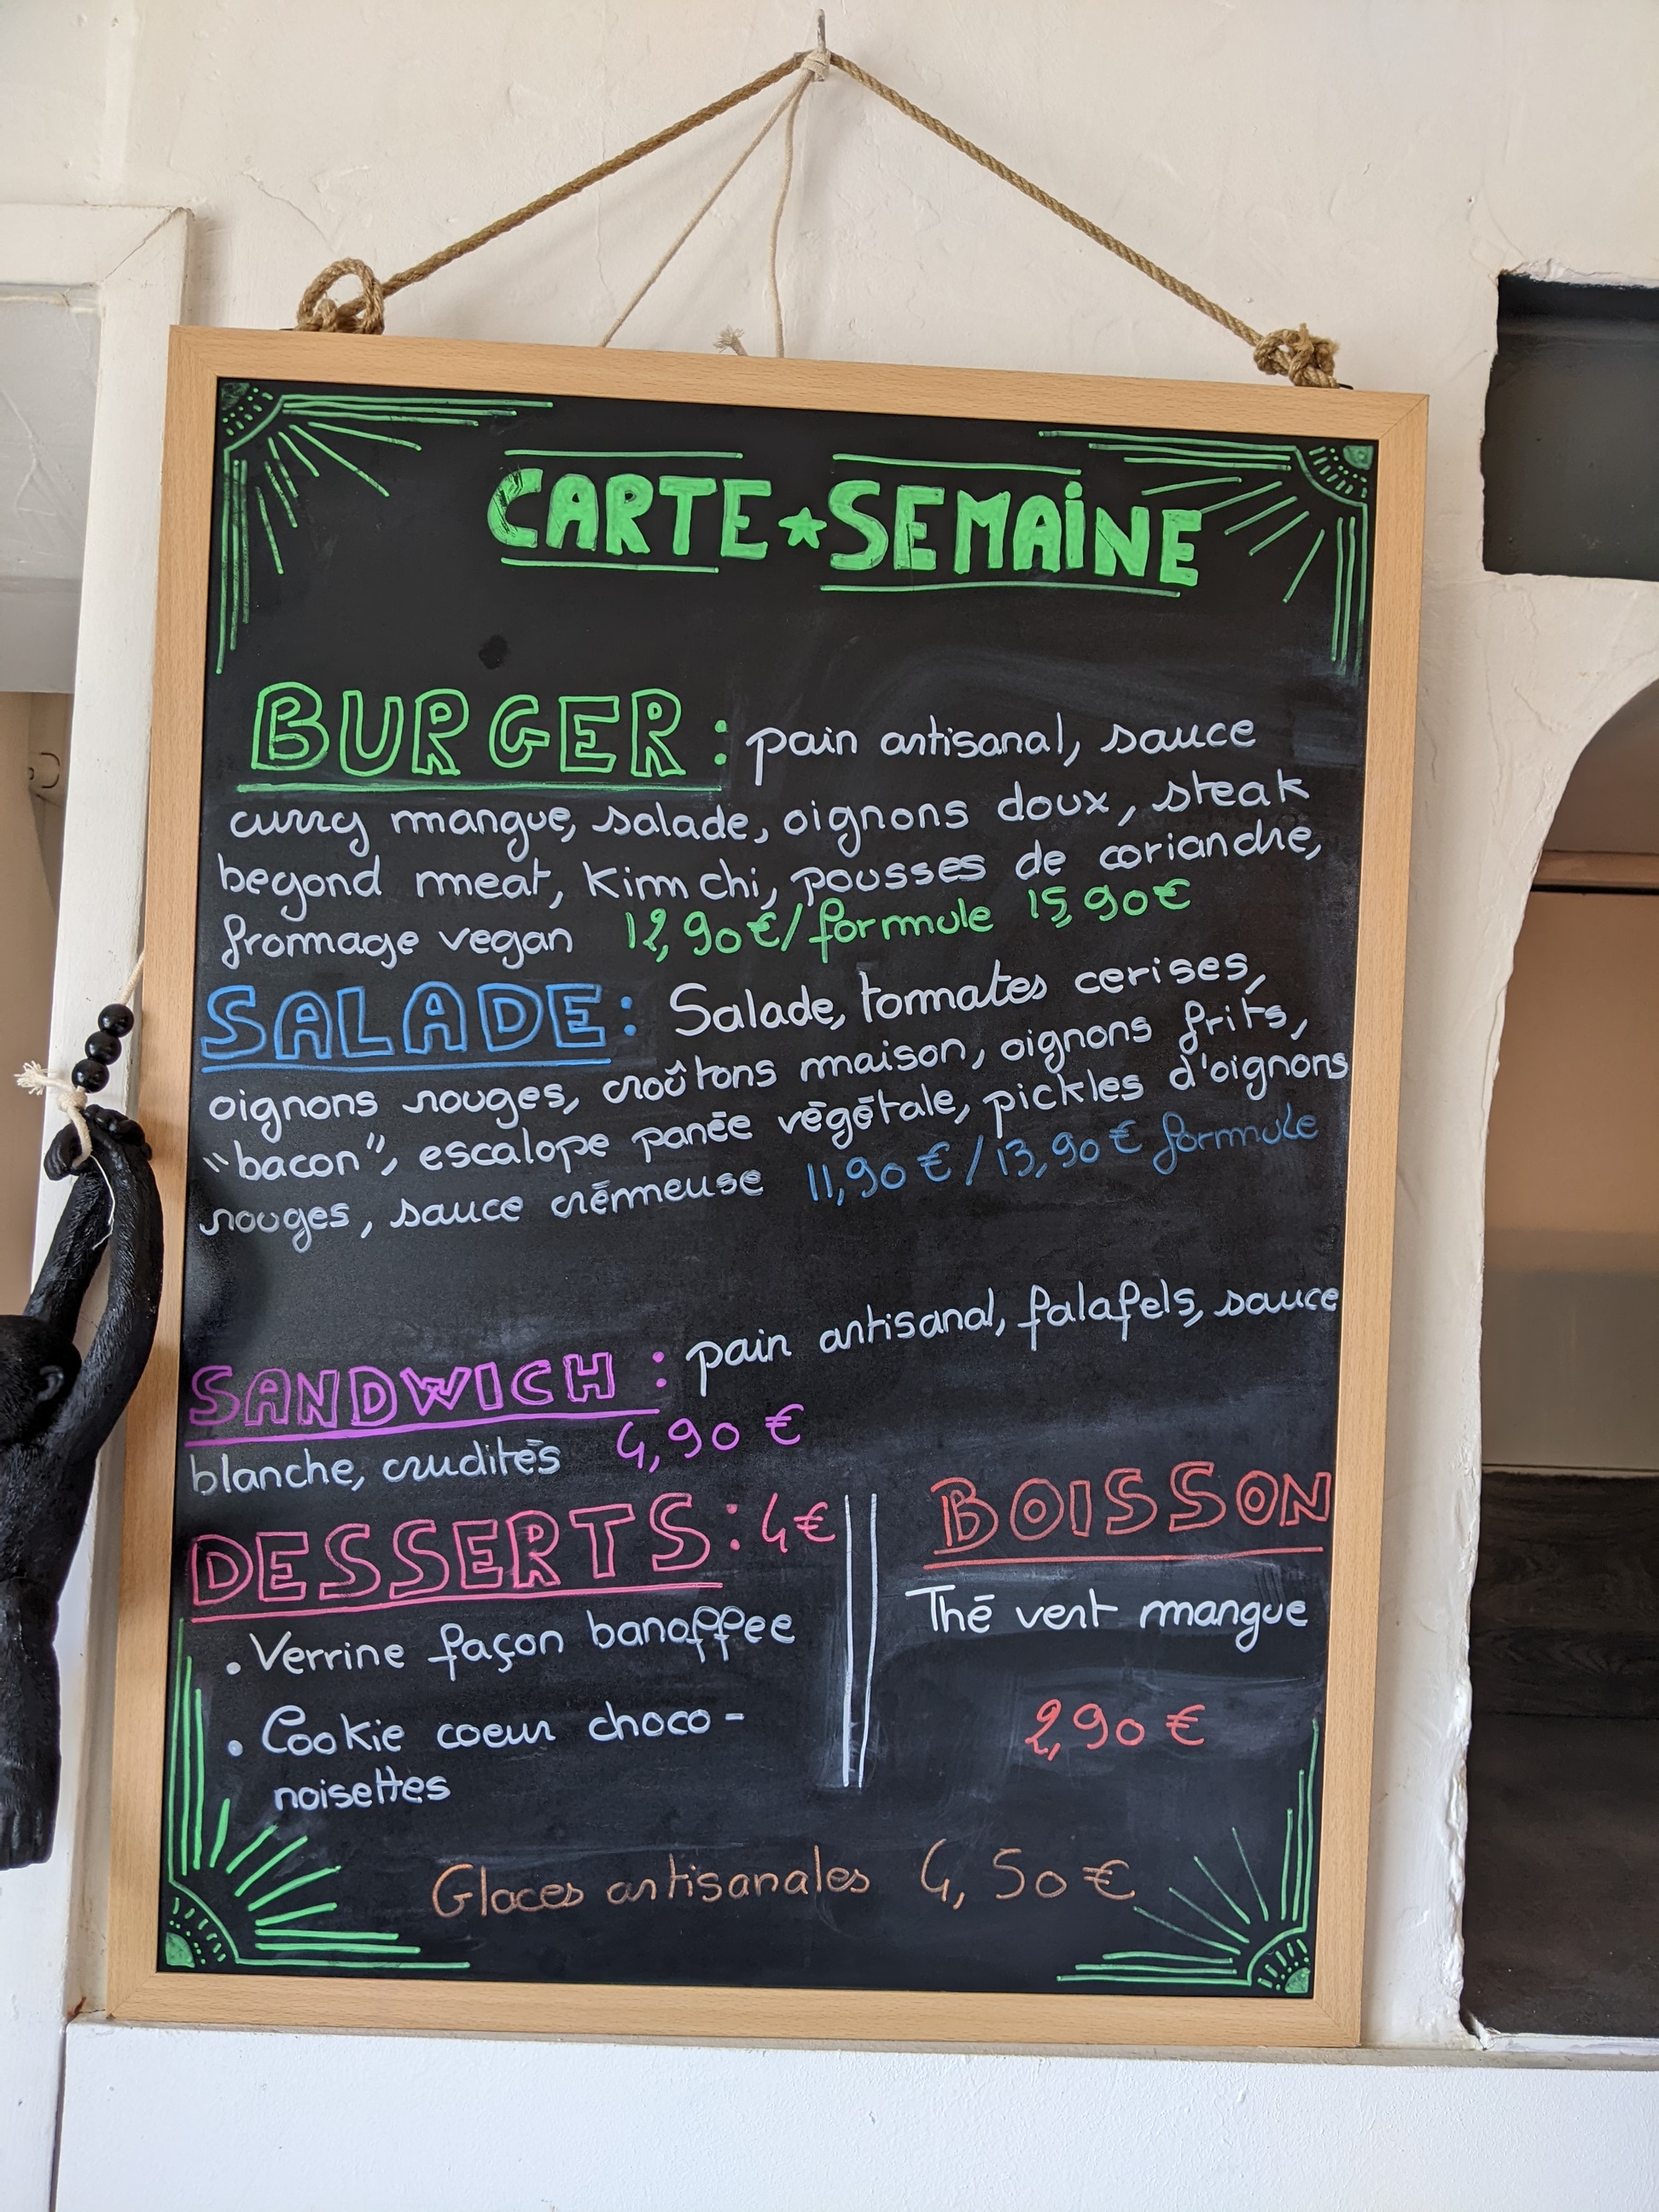 CARTE★SEMAINE
BURGER : pain artisanal, sauce
curry mangue, salade, oignons doux, steak
beyond meat, Kimchi, pousses de coriandre,
fromage vegan 12,90€/formule 15,90€
SALADE : Salade, tomates cerises,
oignons rouges, croûtons maison, oignons frits,
"bacon", escalope panée végétale, pickles d'oignons
rouges, sauce crémeuse 11,90€/13,90€ formule
SANDWICH : pain artisanal, falafels, sauce
blanche, crudités 4,90€
DESSERTS : 4€
• Verrine façon banoffee
• Cookie coeur choco-
noisettes
BOISSON
Thé vert mangue
2,90€
Glaces artisanales 4,50€